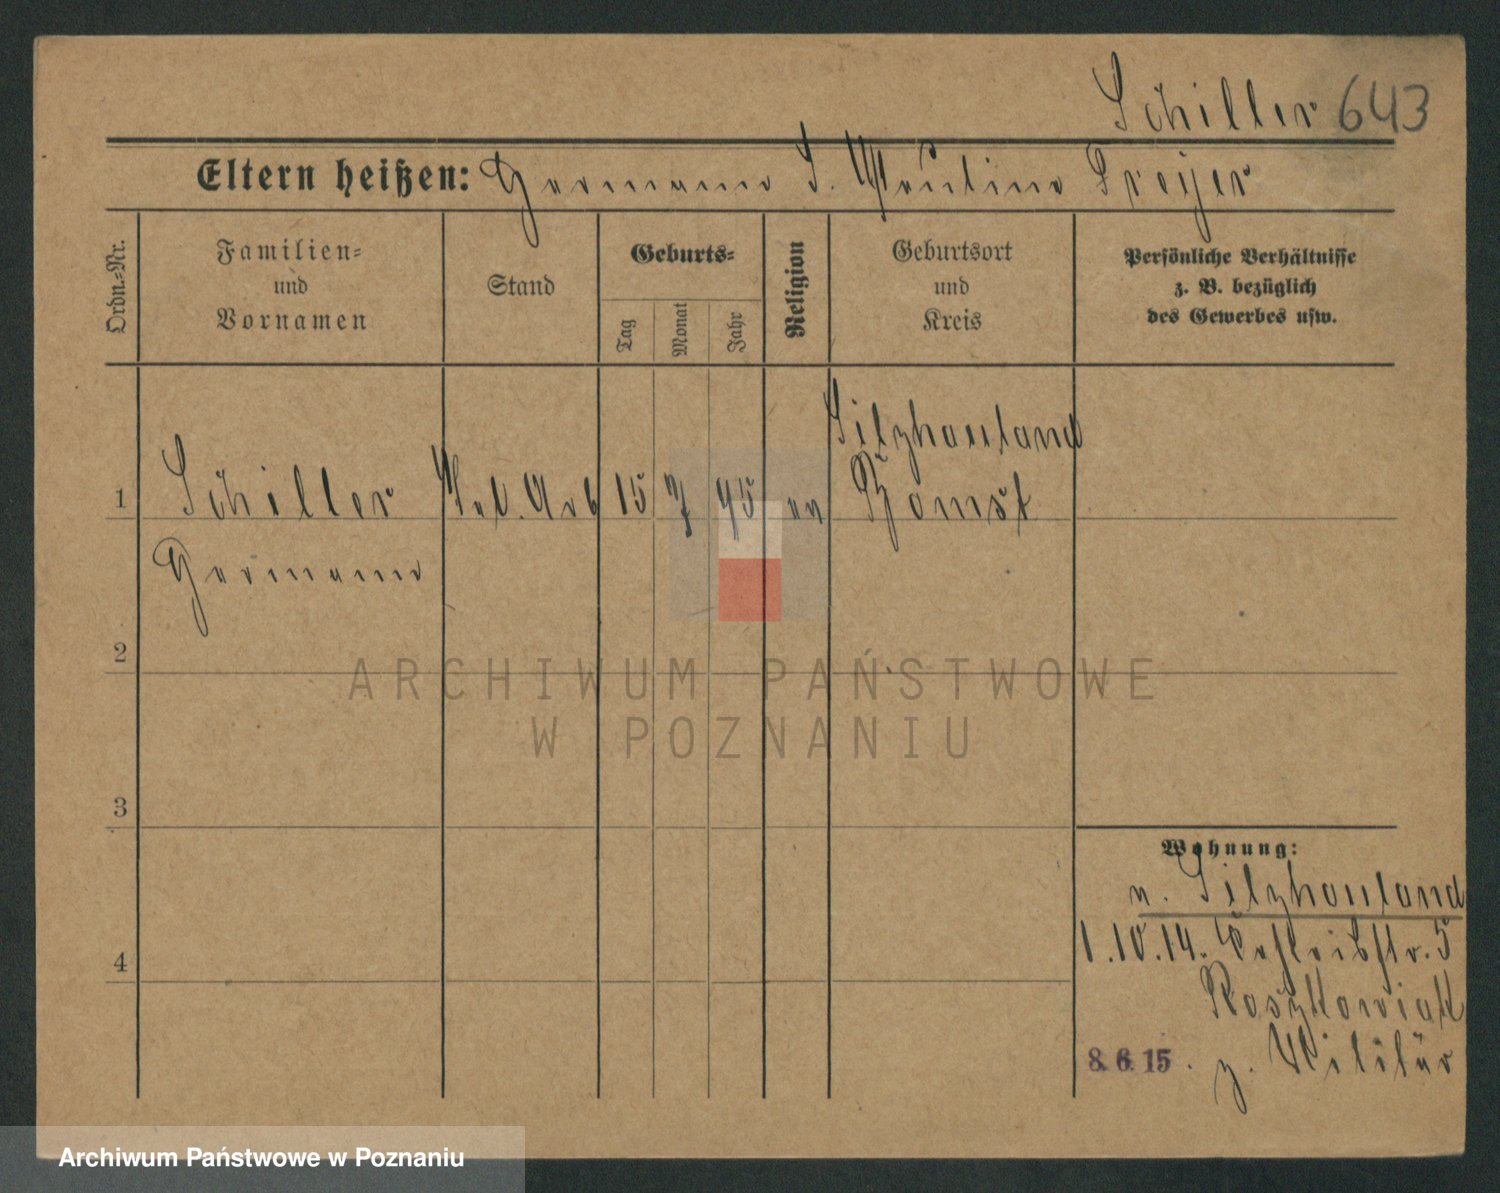 Schiller 643
Eltern heißen: Hermann S. Pauline Freyer
Ordn.=Nr.
Familien=
und
Vornamen
Stand
Geburts=
Tag
Monat
Jahr
Religion
Geburtsort
und
Kreis
Persönliche Verhältnisse
z. B. bezüglich
des Gewerbes usw.
1
Schiller
Hermann
Arb
15
7
95
ev
Silzhauland
Bomst
2
3
4
Wohnung:
n. Silzhauland
1.10.14. 5
Roszkowiak
8.6.15. z. Militär
ARCHIWUM PAŃSTWOWE
W POZNANIU
Archiwum Państwowe w Poznaniu